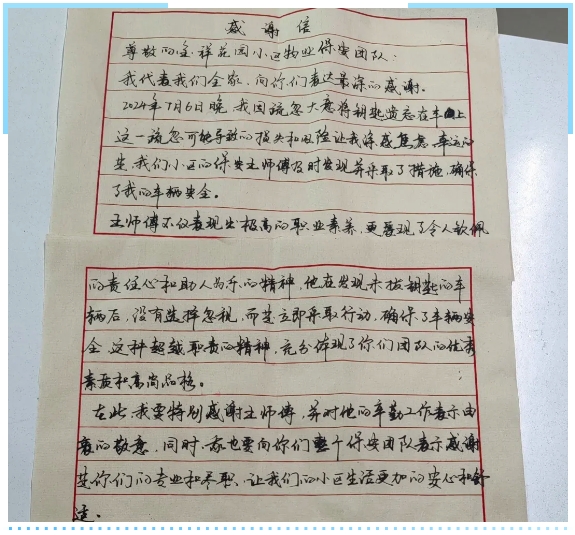 感谢信
尊敬的金祥花园小区物业保安团队：
我代表我们全家，向你们表达最深的感谢。
2024年7月6日晚，我因疏忽大意将钥匙遗忘在车上
这一疏忽可能导致的损失和风险让我深感焦虑。幸运的
是，我们小区的保安王师傅及时发现并采取了措施，确保
了我的车辆安全。
王师傅不仅表现出极高的职业素养，更展现了令人钦佩
的责任心和助人为乐的精神，他在发现未拔钥匙的车
辆后，没有选择忽视，而是立即采取行动，确保了车辆安
全，这种超越职责的精神，充分体现了你们团队的优秀
素质和高尚品格。
在此，我要特别感谢王师傅，并对他的辛勤工作表示由
衷的敬意，同时，我也要向你们整个保安团队表示感谢
是你们的专业和尽职，让我们的小区生活更加的安心和舒
适。